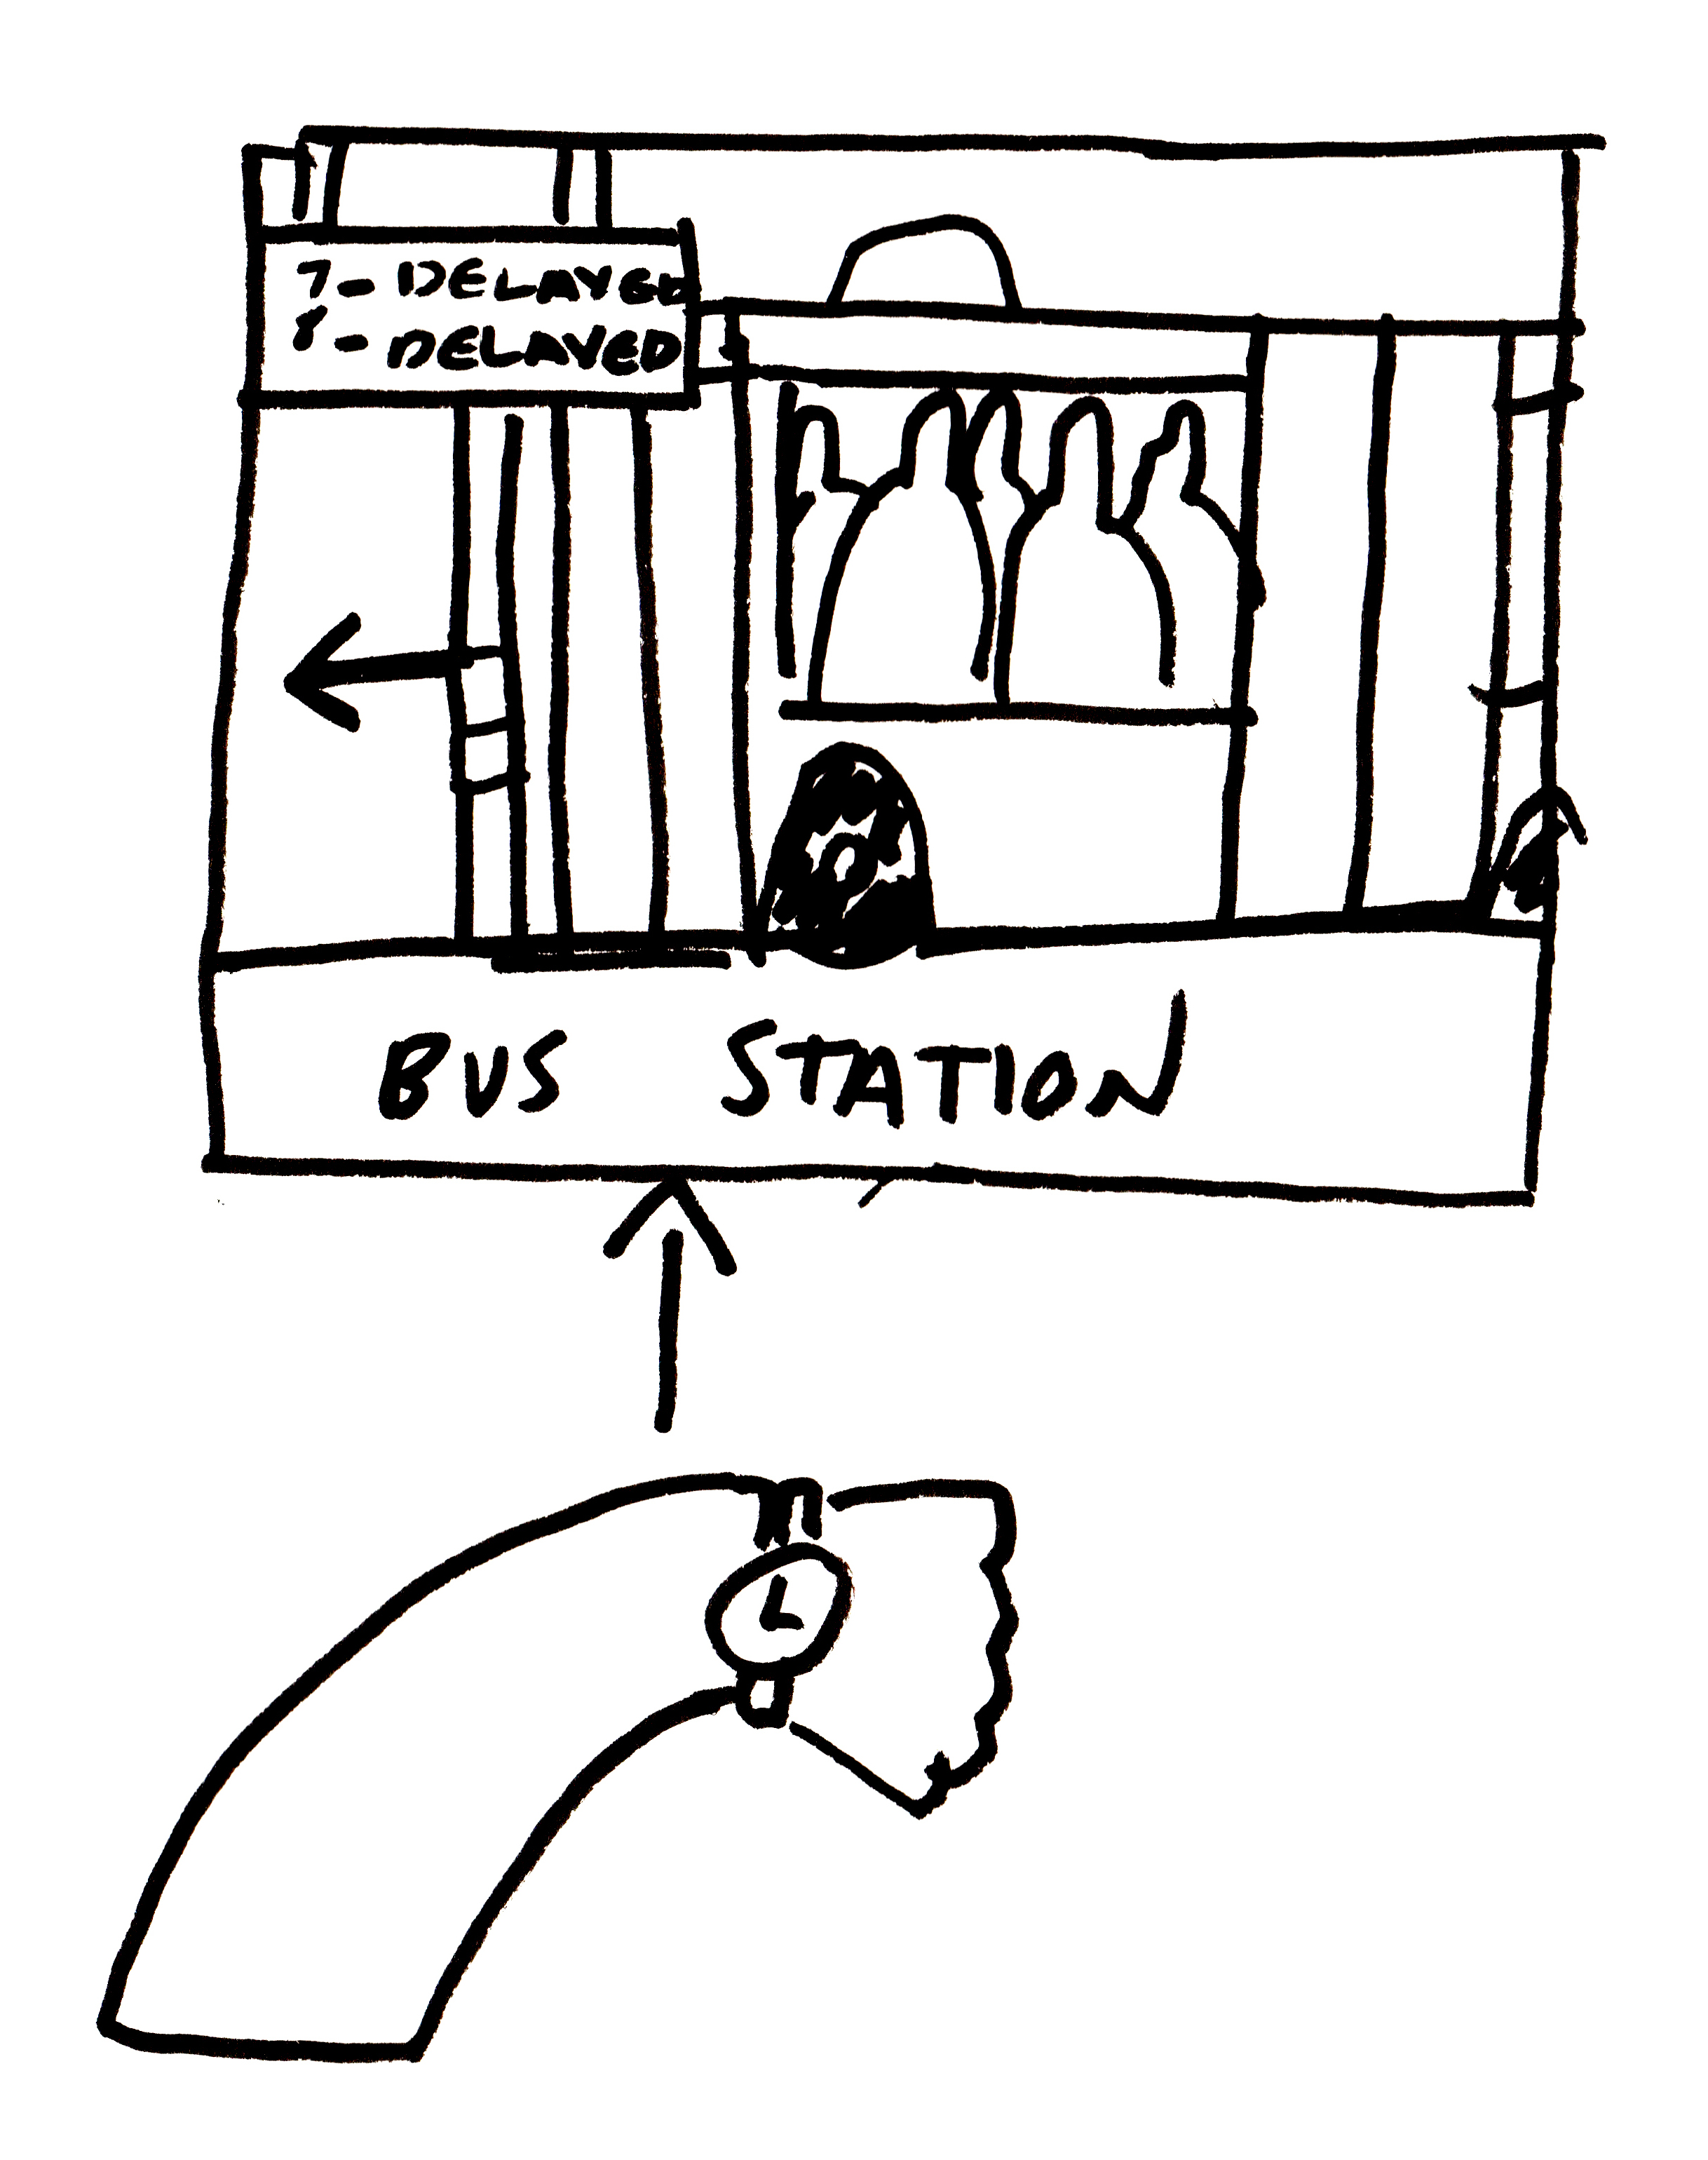 7- DELAYED
8- DELAYED
BUS STATION